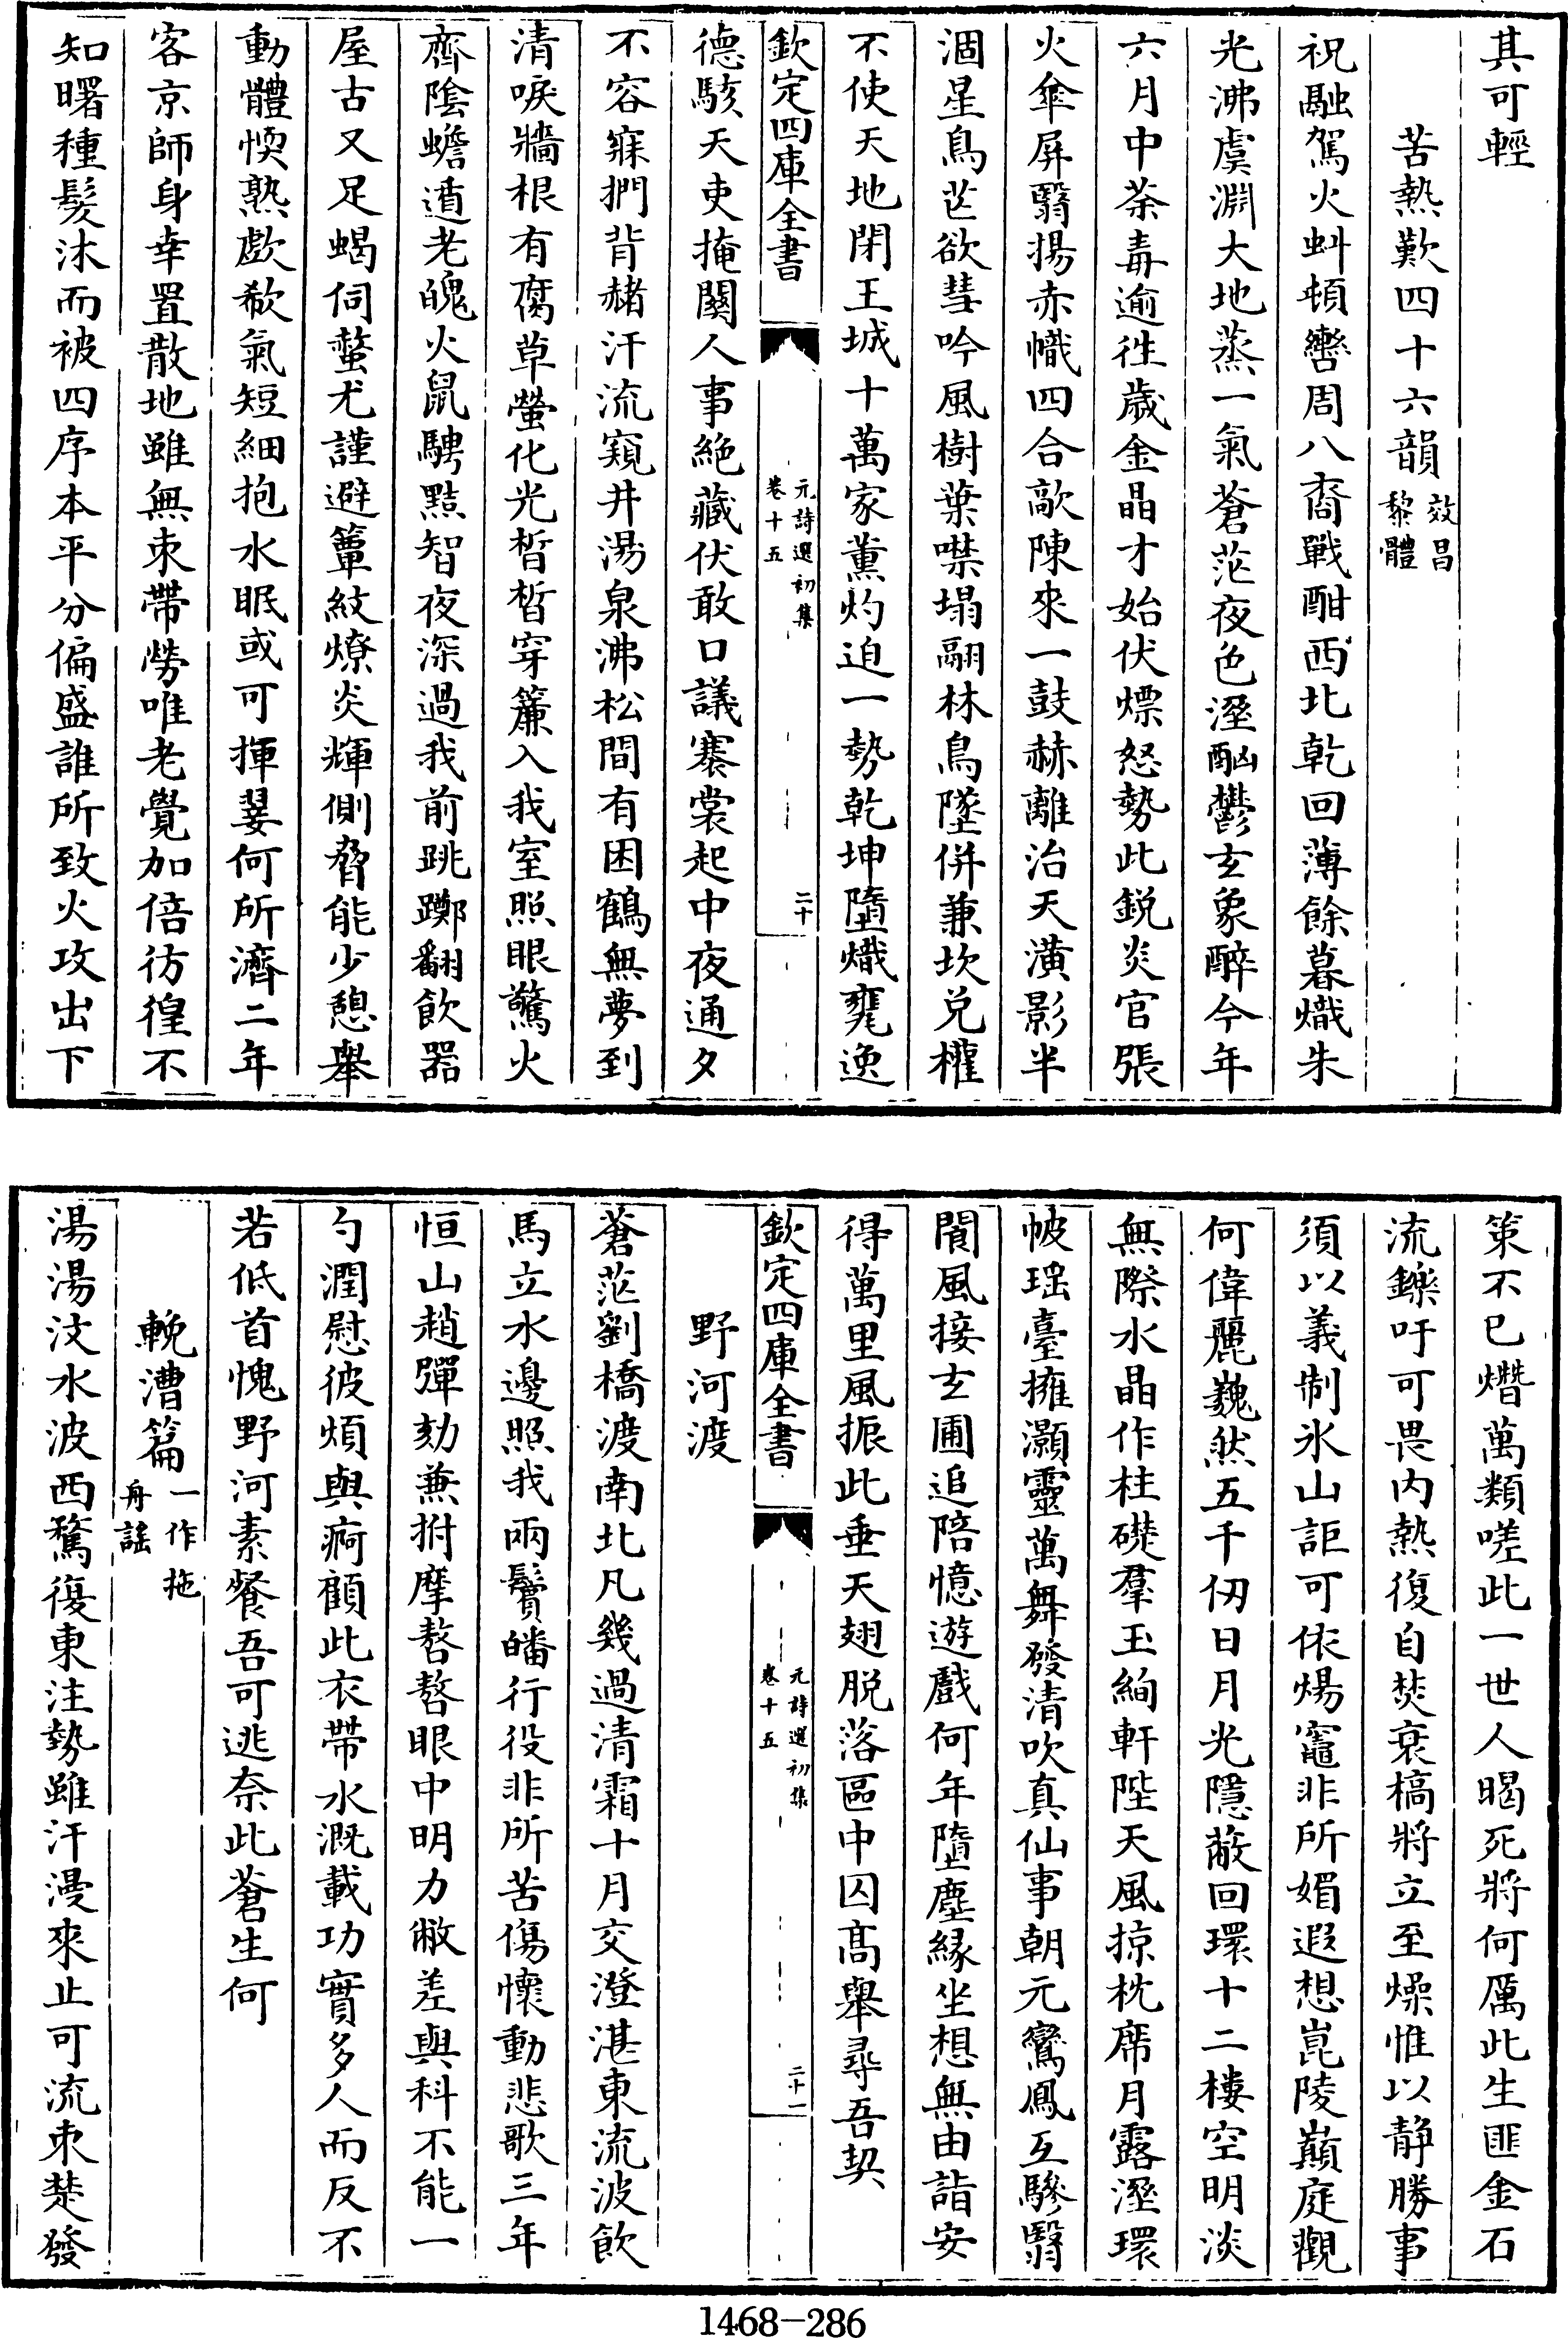 其可輕
苦熱歎四十六韻效昌黎體
祝融駕火虯頓轡周八裔戰酣西北乾回薄餘暮熾朱
光沸虞淵大地蒸一氣蒼茫夜色溼酗鬱玄象醉今年
六月中荼毒逾往歲金晶才始伏熛怒勢此銳炎官張
火傘屏翳揚赤幟四合敵陳來一鼓赫離治天潢影半
涸星鳥芒欲彗吟風樹葉噤塌翮林鳥墜併兼坎兌權
不使天地閉王城十萬家薰灼迫一勢乾坤墮熾甕逸
欽定四庫全書
元詩選初集
卷十五
二十
德駭天吏掩關人事絕藏伏敢口議褰裳起中夜通夕
不容寐捫背赭汗流窺井湯泉沸松間有困鶴無夢到
清唳牆根有腐草螢化光晳晳穿簾入我室照眼驚火
齊陰蟾遁老魄火鼠騁黠智夜深過我前跳躑翻飲器
屋古又足蝎伺螫尤謹避簟紋燎炎輝側脅能少憩舉
動體愞熟歔欷氣短細抱水眠或可揮翣何所濟二年
客京師身幸置散地雖無束帶勞唯老覺加倍彷徨不
知曙種髮沐而被四序本平分偏盛誰所致火攻出下
策不已爢萬類嗟此一世人暍死將何厲此生匪金石
流鑠吁可畏内熱復自焚衰槁將立至燥惟以靜勝事
須以義制氷山詎可依煬竈非所媚遐想崑陵巔庭觀
何偉麗巍然五千仞日月光隱蔽回環十二樓空明淡
無際水晶作柱礎羣玉絢軒陛天風掠枕席月露溼環
帔瑶臺擁灝靈萬舞發清吹真仙事朝元鸞鳳互驂翳
閬風接玄圃追陪憶遊戲何年墮塵緣坐想無由詣安
得萬里風振此垂天翅脱落區中囚高舉尋吾契
欽定四庫全書
元詩選初集
卷十五
二十一
野河渡
蒼茫劉橋渡南北凡幾過清霜十月交澄湛東流波飲
馬立水邊照我兩鬢皤行役非所苦傷懷動悲歌三年
恒山趙彈劾兼拊摩嗸嗸眼中明力敝差與科不能一
勺潤慰彼煩與痾顧此衣帶水溉載功實多人而反不
若低首愧野河素餐吾可逃奈此蒼生何
輓漕篇一作拖舟謡
湯湯汶水波西騖復東注勢雖汗漫來止可流束楚發
1468-286